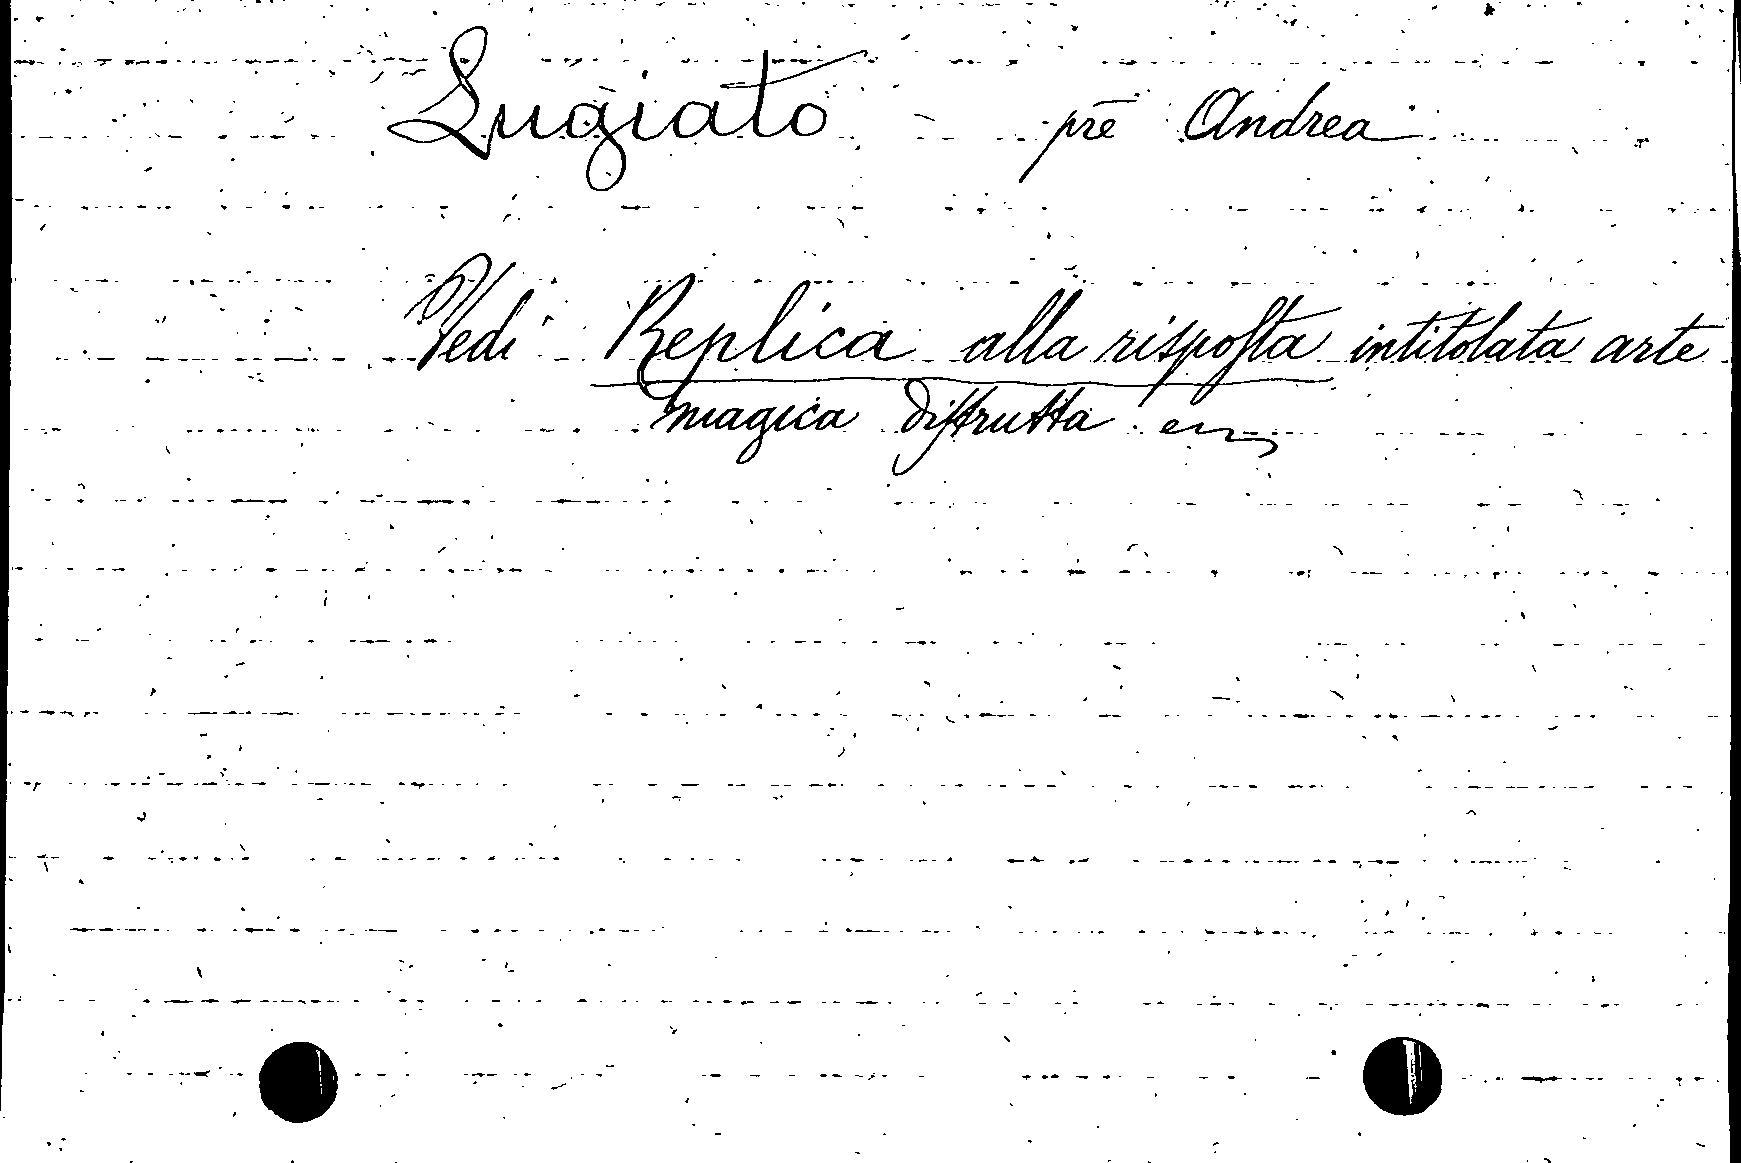 Lugiato prē Andrea
Vedi Replica alla risposta intitolata arte
magica distrutta